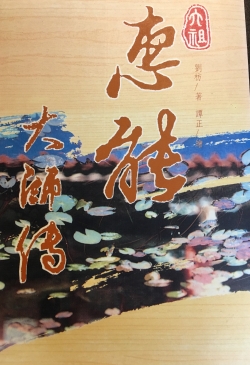 六祖
惠能
大師傳
著 譚正